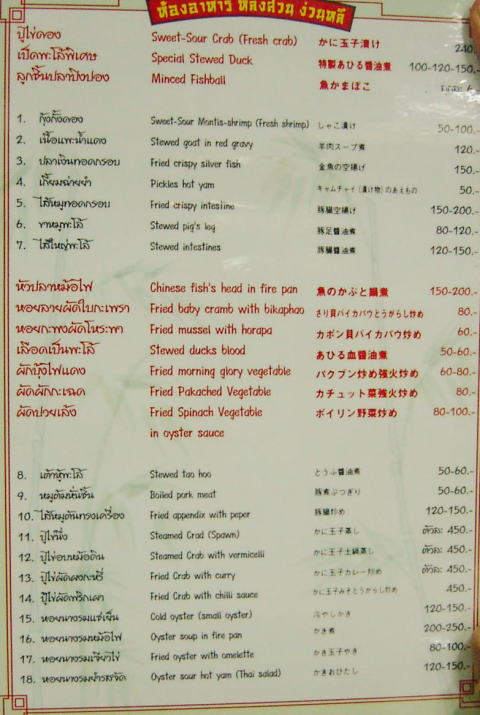 ห้องอาหาร หลังสวน ง่วนหลี
ปูไข่ดอง Sweet-Sour Crab (Fresh crab) かに玉子漬け 240.-
เป็ดพะโล้พิเศษ Special Stewed Duck 特製あひる醤油煮 100-120-150.-
ลูกชิ้นปลาปิ้งปอง Minced Fishball 魚かまぼこ
1. กุ้งกั้งดอง Sweet-Sour Montis-shrimp (Fresh shrimp) しゃこ漬け 50-100.-
2. เนื้อแพะน้ำแดง Stewed goat in red gravy 羊肉スープ煮 120.-
3. ปลาเงินทอดกรอบ Fried crispy silver fish 金魚の空揚げ 150.-
4. เกี้ยมฉ่ายยำ Pickles hot yam キャムチャイ(漬け物)のあえもの 50.-
5. ไส้หมูทอดกรอบ Fried crispy intestine 豚腸空揚げ 150-200.-
6. ขาหมูพะโล้ Stewed pig's leg 豚足醤油煮 80-120.-
7. ไส้ใหญ่พะโล้ Stewed intestines 豚腸醤油煮 120-150.-
หัวปลาหม้อไฟ Chinese fish's head in fire pan 魚のかぶと鍋煮 150-200.-
หอยลายผัดใบกะเพรา Fried baby cramb with bikaphao さり貝バイカパウとうがらし炒め 80.-
หอยกะพงผัดโหระพา Fried mussel with horapa カポン貝バイカパウ炒め 60.-
เลือดเป็ดพะโล้ Stewed ducks blood あひる血醤油煮 50-60.-
ผักบุ้งไฟแดง Fried morning glory vegetable パクブン炒め強火炒め 60-80.-
ผัดผักกะเฉด Fried Pakached Vegetable カチェット菜強火炒め 80.-
ผัดปวยเล้ง Fried Spinach Vegetable ボイリン野菜炒め 80-100.-
in oyster sauce
8. เต้าหู้พะโล้ Stewed tao hoo とうふ醤油煮 50-60.-
9. หมูต้มหั่นชิ้น Boiled pork meat 豚煮ぶつぎり 50-60.-
10. ไส้หมูตันทรงเครื่อง Fried appendix with peper 豚腸炒め 120-150.-
11. ปูไข่นึ่ง Steamed Crad (Spawn) かに玉子蒸し ตัวละ 450.-
12. ปูไข่อบหม้อดิน Steamed Crab with vermicelli かに玉子土鍋蒸し ตัวละ 450.-
13. ปูไข่ผัดผงกะหรี่ Fried Crab with curry かに玉子カレー炒め ตัวละ 450.-
14. ปูไข่ผัดพริกเผา Fried Crab with chilli sauce かに玉子みそとうがらし炒め 450.-
15. หอยนางรมแช่เย็น Cold oyster (small oyster) 冷やしかき 120-150.-
16. หอยนางรมหม้อไฟ Oyster soup in fire pan かき煮 200-250.-
17. หอยนางรมเจียวไข่ Fried oyster with omelette かき玉子やき 80-100.-
18. หอยนางรมยำรสจัด Oyster sour hot yam (Thai salad) かきおひたし 120-150.-